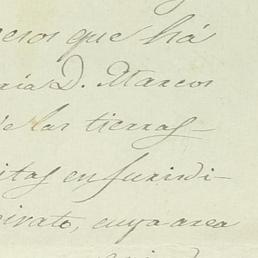 esos que há
ria D. Marcos
de las tierras
itas en jurisdi-
eirato, cuya area